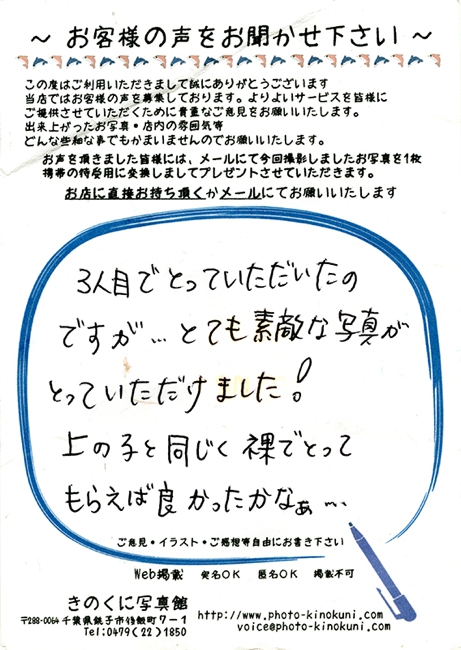 ～ お客様の声をお聞かせ下さい ～
この度はご利用いただきまして誠にありがとうございます
当店ではお客様の声を募集しております。よりよいサービスを皆様に
ご提供させていただくために貴重なご意見をお願いいたします。
出来上がったお写真・店内の雰囲気等
どんな些細な事でもかまいませんのでお願いいたします。
お声を頂きました皆様には、メールにて今回撮影しましたお写真を1枚
携帯の待受用に変換しましてプレゼントさせていただきます。
お店に直接お持ち頂くかメールにてお願いいたします
3人目でとっていただいたの
ですが…とても素敵な写真が
とっていただけました!
上の子と同じく裸でとって
もらえば良かったかなぁ…
ご意見・イラスト・ご感想等自由にお書き下さい
Web掲載 実名OK 匿名OK 掲載不可
きのくに写真館
〒288-0064 千葉県銚子市
7-1
Tel:0479(22)1850
http://www.photo-kinokuni.com/
voice@photo-kinokuni.com